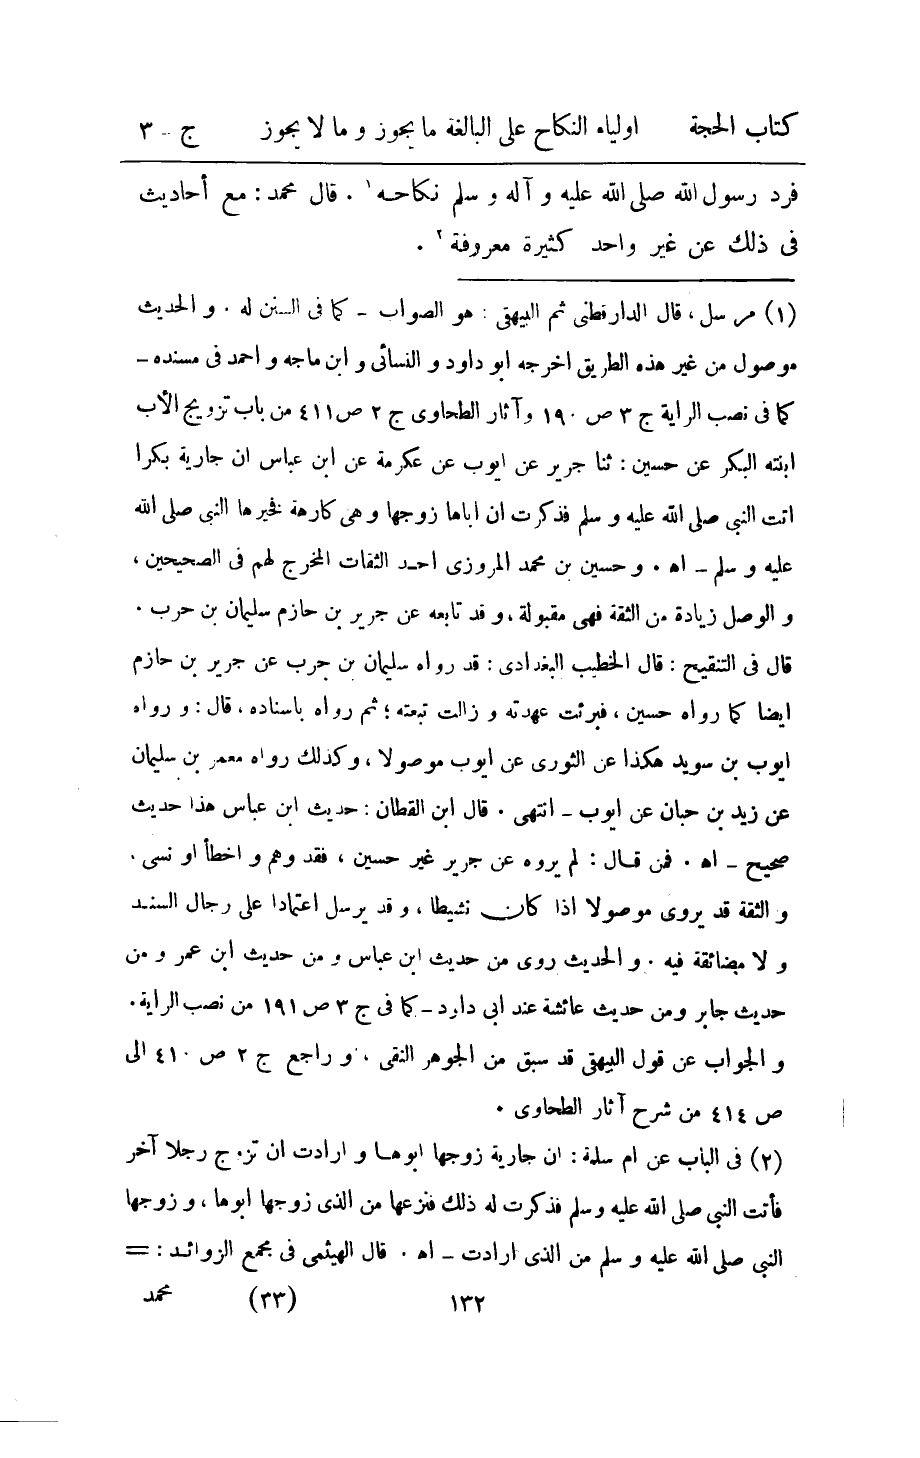 كتاب الحجة اولياء النكاح على البالغة ما يجوز و ما لا يجوز ج - ٣
فرد رسول الله صلى الله عليه و آله و سلم نكاحه ١ . قال محمد : مع أحاديث
فى ذلك عن غير واحد كثيرة معروفة ٢ .
(١) مرسل ، قال الدارقطنى ثم البيهقى : هو الصواب - كما فى السنن له . و الحديث
موصول من غير هذه الطريق اخرجه ابو داود و النسائى و ابن ماجه و احمد فى مسنده -
كما فى نصب الراية ج ٣ ص ١٩٠ وآثار الطحاوى ج ٢ ص ٤١١ من باب تزويج الأب
ابنته البكر عن حسين : ثنا جرير عن ايوب عن عكرمة عن ابن عباس ان جارية بكرا
اتت النبى صلى الله عليه و سلم فذكرت ان اباها زوجها وهى كارهة فخيرها النبى صلى الله
عليه و سلم - اه . و حسين بن محمد المروزى احد الثقات المخرج لهم فى الصحيحين ،
و الوصل زيادة من الثقة فهى مقبولة ، و قد تابعه عن جرير بن حازم سليمان بن حرب .
قال فى التنقيح : قال الخطيب البغدادى : قد رواه سليمان بن حرب عن جرير بن حازم
ايضا كما رواه حسين ، فبرئت عهدته و زالت تبعته ؛ ثم رواه باسناده ، قال : و رواه
ايوب بن سويد هكذا عن الثورى عن ايوب موصولا ، وكذلك رواه معمر بن سليمان
عن زيد بن حبان عن ايوب - انتهى . قال ابن القطان : حديث ابن عباس هذا حديث
صحيح - اه . فمن قال : لم يروه عن جرير غير حسين ، فقد وهم و اخطأ او نسى .
و الثقة قد يروى موصولا اذا كان نشيطا ، و قد يرسل اعتمادا على رجال السند
و لا مضائقة فيه . و الحديث روى من حديث ابن عباس و من حديث ابن عمر و من
حديث جابر ومن حديث عائشة عند ابى داود - كما فى ج ٣ ص ١٩١ من نصب الراية .
و الجواب عن قول البيهقى قد سبق من الجوهر النقى ، و راجع ج ٢ ص ٤١٠ الى
ص ٤١٤ من شرح آثار الطحاوى .
(٢) فى الباب عن ام سلمة : ان جارية زوجها ابوها و ارادت ان تزوج رجلا آخر
فأتت النبى صلى الله عليه وسلم فذكرت له ذلك فنزعها من الذى زوجها ابوها ، و زوجها
النبى صلى الله عليه و سلم من الذى ارادت - اه . قال الهيثمى فى مجمع الزوائد : =
١٣٢ (٣٣) محمد